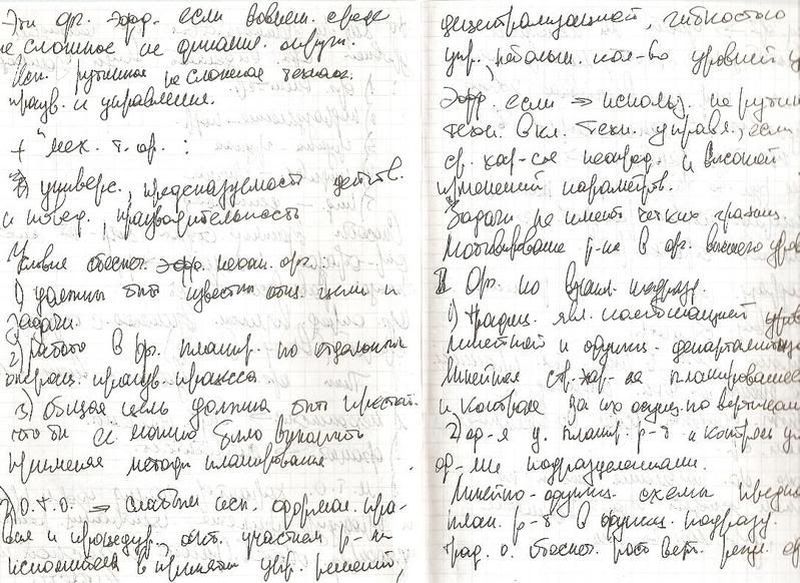 Эти орг. эфф. если вовнеш. среде
не сложное не динамич. окруж.
Исп. рутинное не сложное технол.
произв. и управления.
+ "мех. т. ор. :
универс., предсказуемость действ.
и повед., производительность
Условия обеспеч. эфф. механ. орг.
1) должны быть известны общ. цели и
задачи
2) работа в ор. планир. по отдельным
операц. произв. процесса
3) общая цель должна быть простой
что бы её можно было
применяя методы планирования
О.т.о. => слабым исп. формал. пра-
вил и процедур, акт. участием р-ка
исполнителя в принятии упр. решений,
децентрализацией, гибкостью
упр., небольш. кол-во уровней у
Эфф. если => использ. не рутин
техн. вкл. техн. управл., если
ср. хар-ся неопред. и высокой
изменений параметров.
Задачи не имеют четких границ.
Мотивирование р-ка в орг. высокого уров
II Орг. по взаим. подразд.
1) традиц. явл. комбинацией
Линейной и функц. департаментиза
Линейная стр. хар-ся планированием
и контроль за их осущ. по вертикали
2) ор-я у. планир. р-т и контроль
ор-ми подразделениями.
Линейно-функц. схемы
план. р-т в функц. подразд.
трад. о. обеспеч. рост верт.